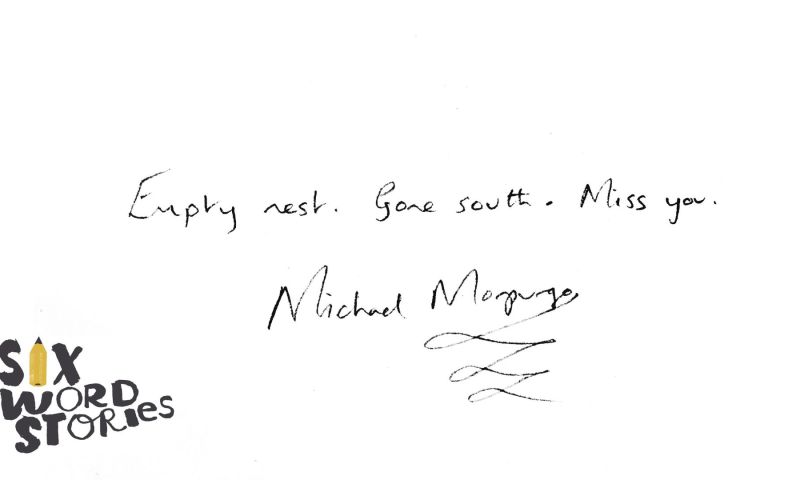 Empty nest. Gone south. Miss you.
Michael Morpurgo
SIX
WORD
STORIES